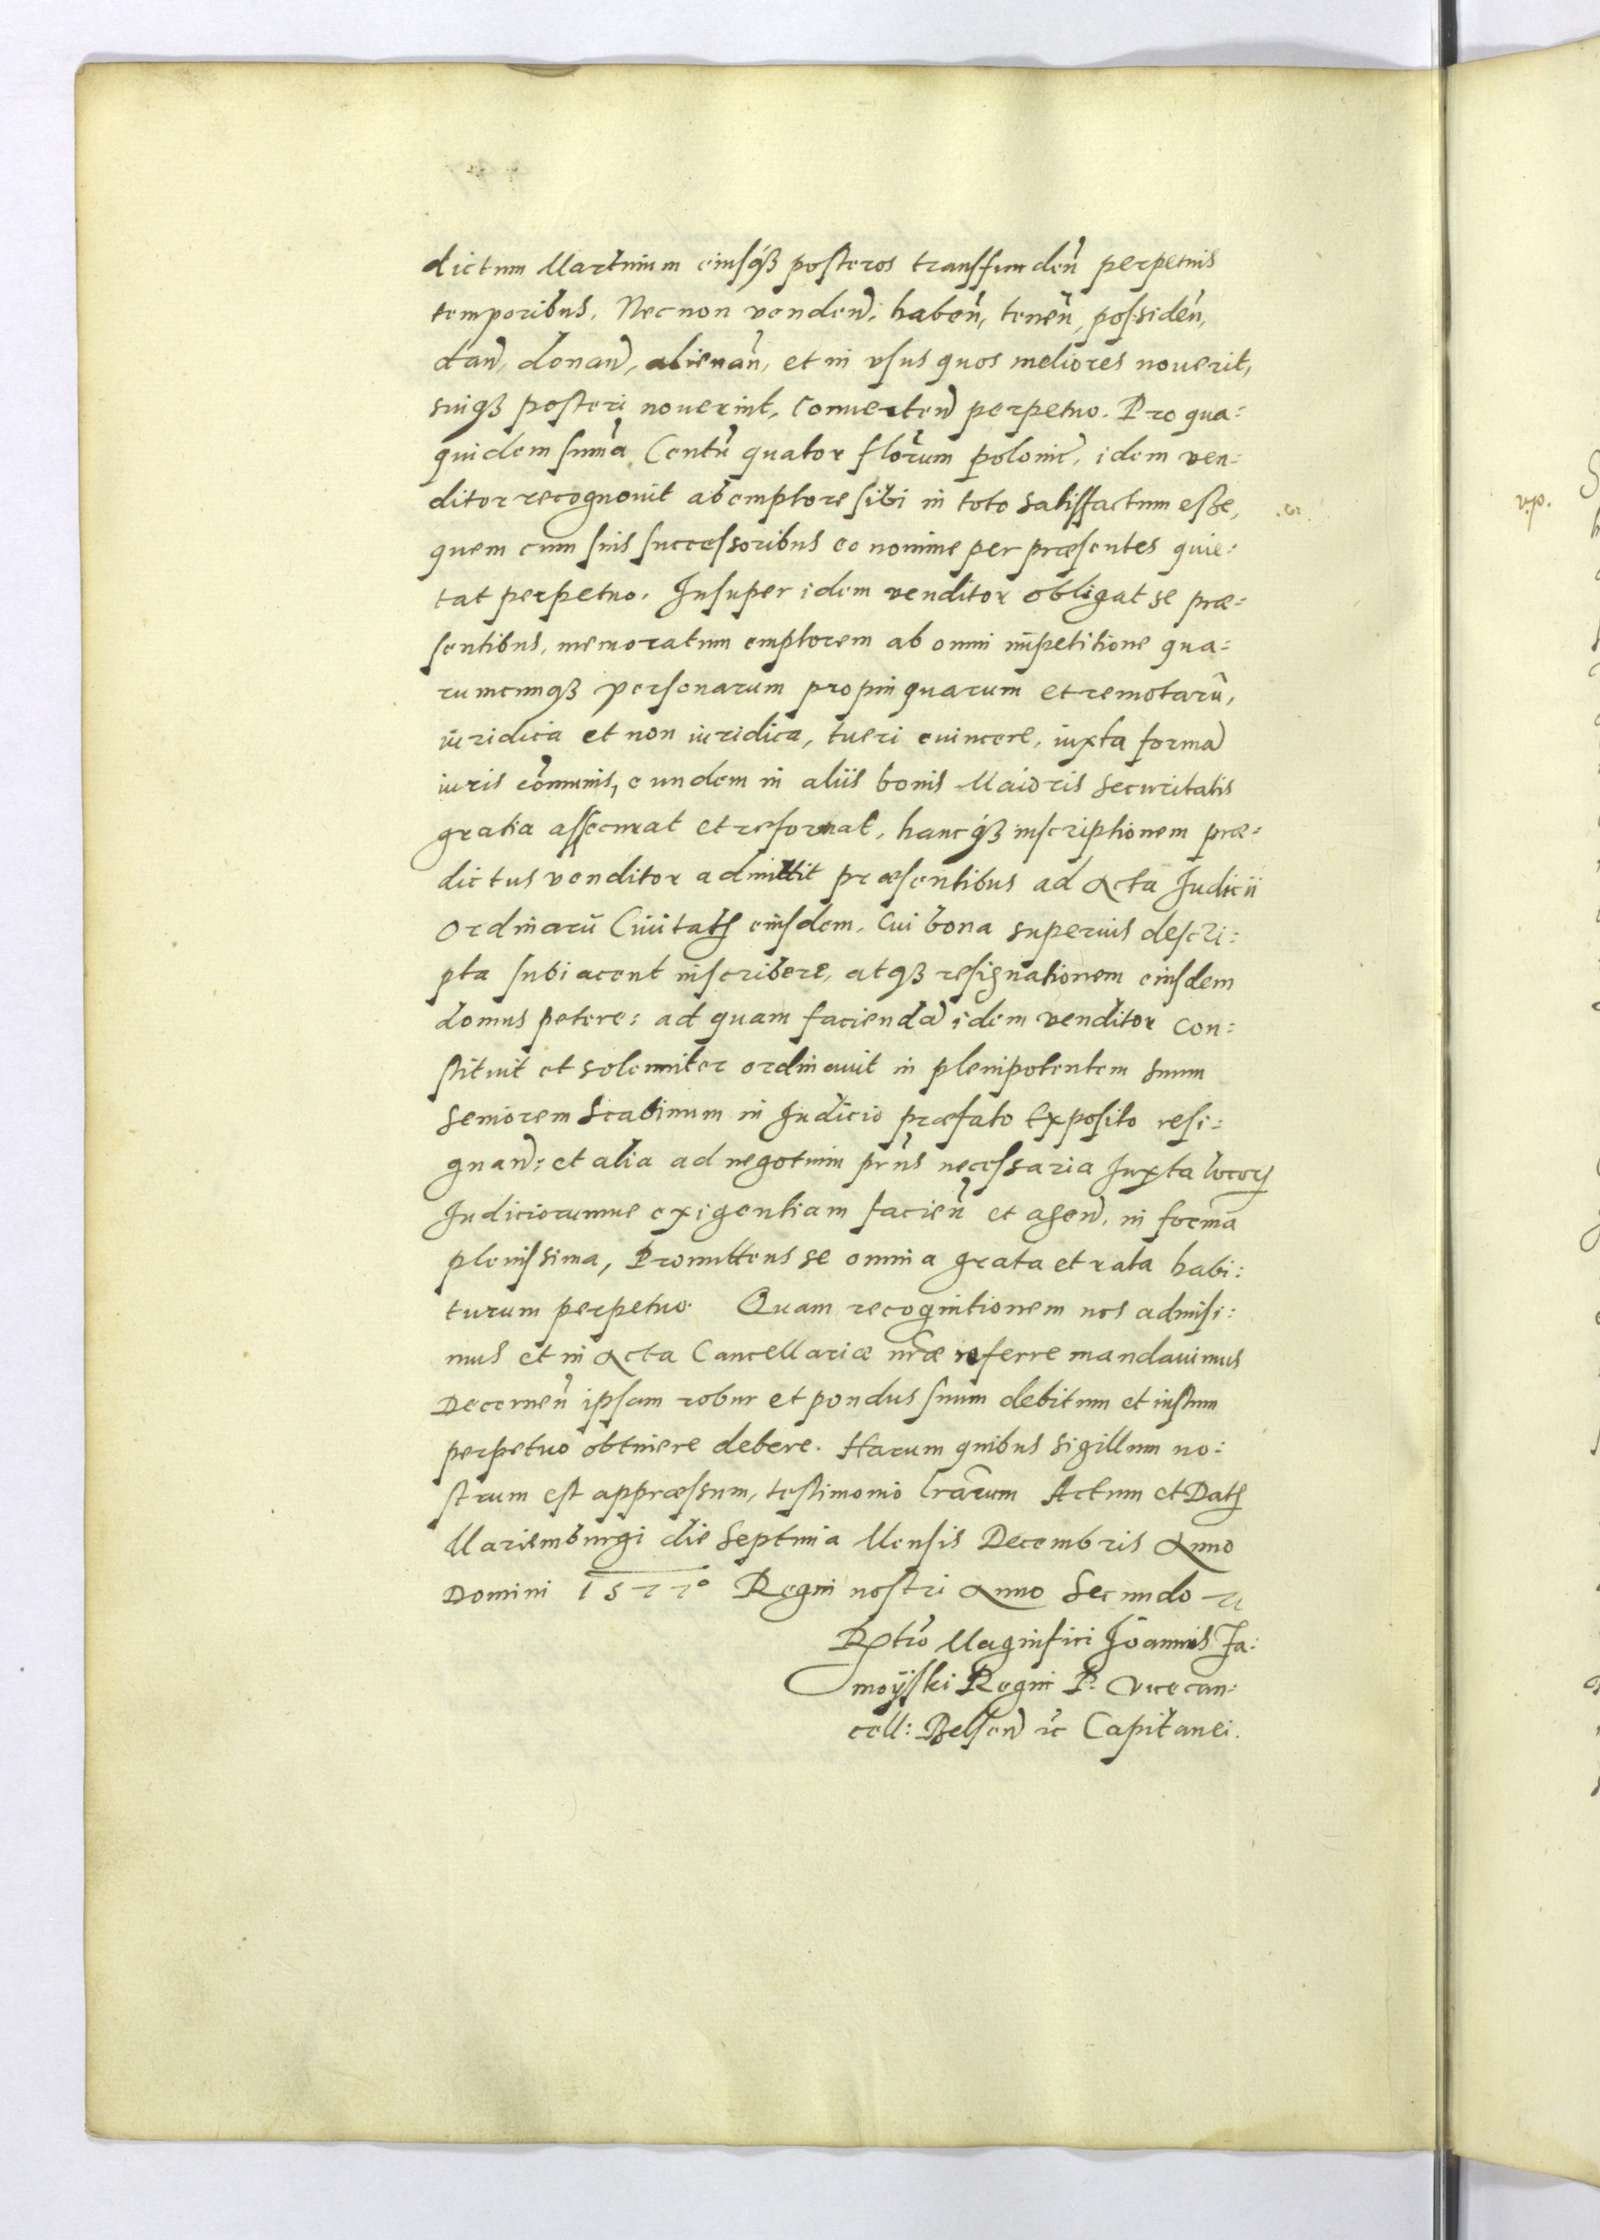 dictum Martinum eiusq́ꝫ posteros transffunden̄ perpetuis
temporibus, Necnon vendend̄, haben̄, tenen̄, possiden̄,
dand̄, donand̄, alienan̄, et in vsus quos meliores nouerit,
suiqꝫ posteri nouerint, Conuertend̄ perpetuo. Pro qua:
quidem sum̄a Centū quator flōrum polonic̄, idem ven:
ditor recognouit ab emptore sibi in toto satisffactum esse,
quem cum suis successoribus eo nomine per præsentes quie:
tat perpetuo. Insuper idem venditor obligat se præ:
sentibus, memoratum emptorem ab omni impetitione qua:
rumcunqꝫ personarum propinquarum et remotarū,
iuridica et non iuridica, tueri euincere, iuxta formā
iuris com̄unis, eundem in aliis bonis Maioris securitatis
gratia assecurat et reformat, hancq́ꝫ inscriptionem præ:
dictus venditor admittit præsentibus ad Acta Judicii
Ordinarii Ciuitatꝭ eiusdem, Cui bona superius descri:
pta subiacent inscribere, atqꝫ resignationem eiusdem
domus petere: ad quam faciendā idem venditor con:
stituit et solenniter ordinauit in plenipotentem suum
seniorem Scabinum in Judicio præfato Exposito resi:
gnand̄: et alia ad negotium pr̄ns necessaria Juxta locorꝝ
Judiciorumue exigentiam facien̄ et agend̄, in forma
plenissima, Promittens se omnia grata et rata habi:
turum perpetuo. Quam recognitionem nos admisi:
mus et in Acta Cancellariæ nr̄æ referre mandauimus
Decernen̄ ipsam robur et pondus suum debitum et iustum
perpetuo obtinere debere. Harum quibus sigillum no:
strum est appræssum, testimonio lr̄arum Actum et Datꝭ
Mariemburgi die Septima Mensis Decembris Anno
Domini 1577º Regni nostri Anno Secundo
Rltio Magnifici Joannis Za:
moÿski Regni P. Vicecan:
cell: Belsen̄ ꝛc Capitanei.
v.p.